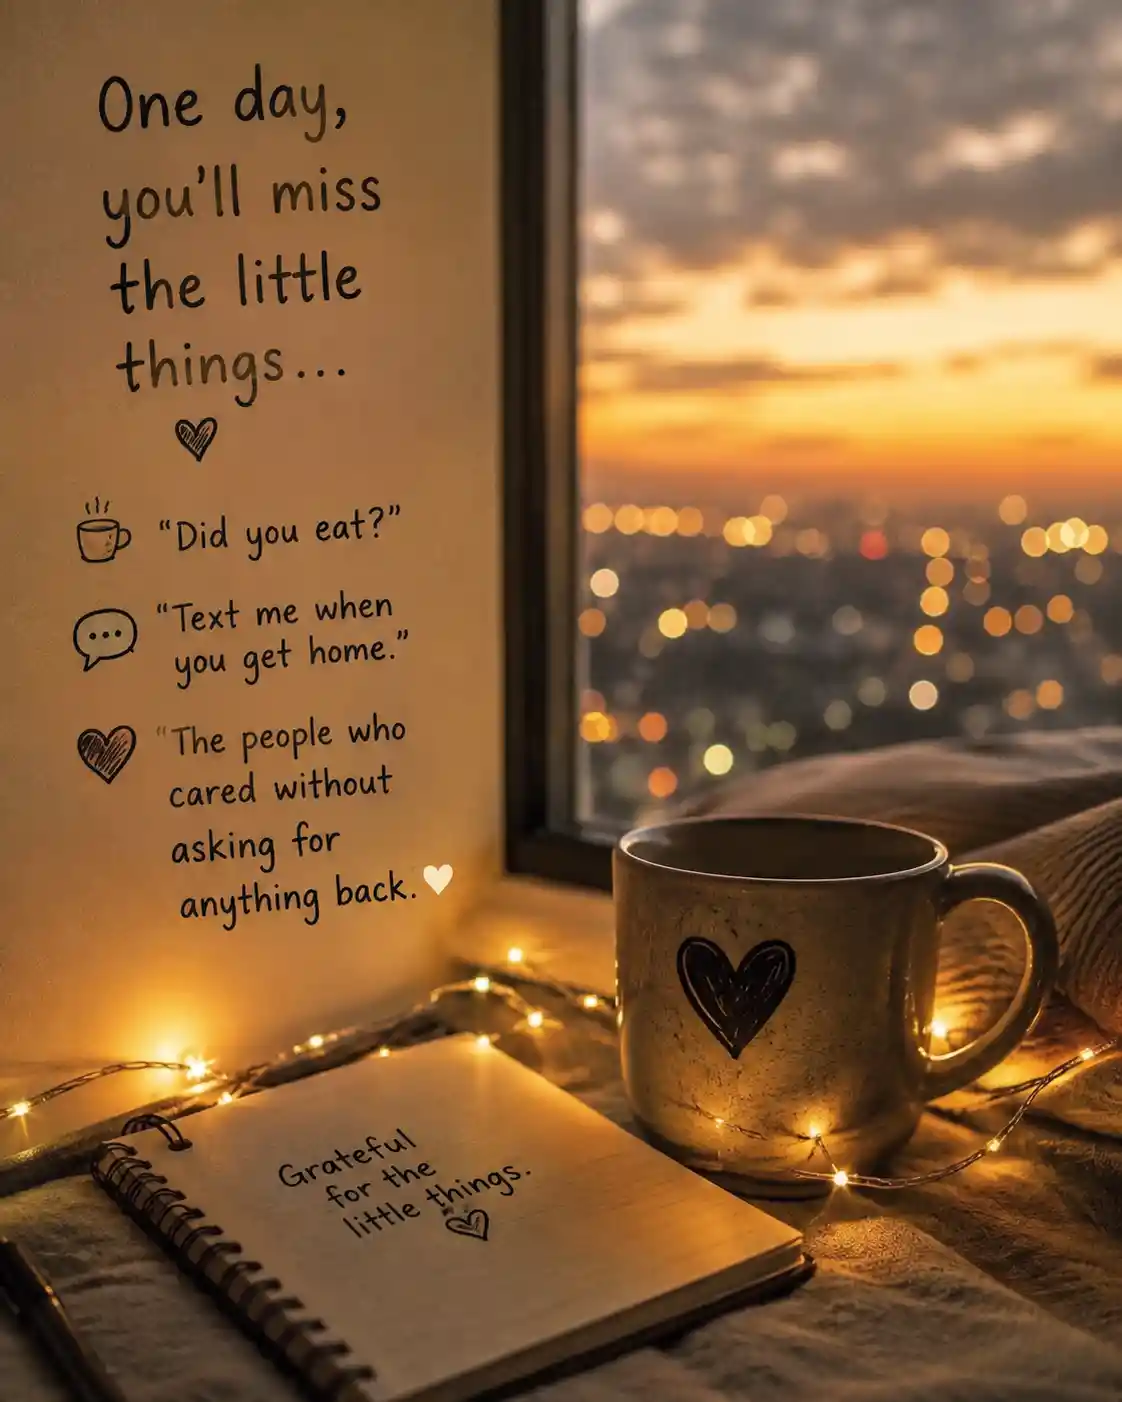 One day,
you'll miss
the little
things...
"Did you eat?"
"Text me when
you get home."
"The people who
cared without
asking for
anything back.
Grateful
for the
little things.